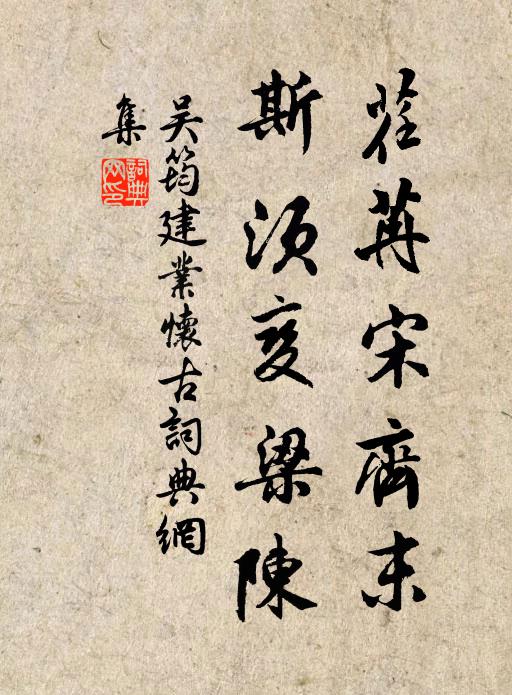 荏苒宋齊末
斯須變梁陳
吴筠建業懷古詞典網
集
詞典網印